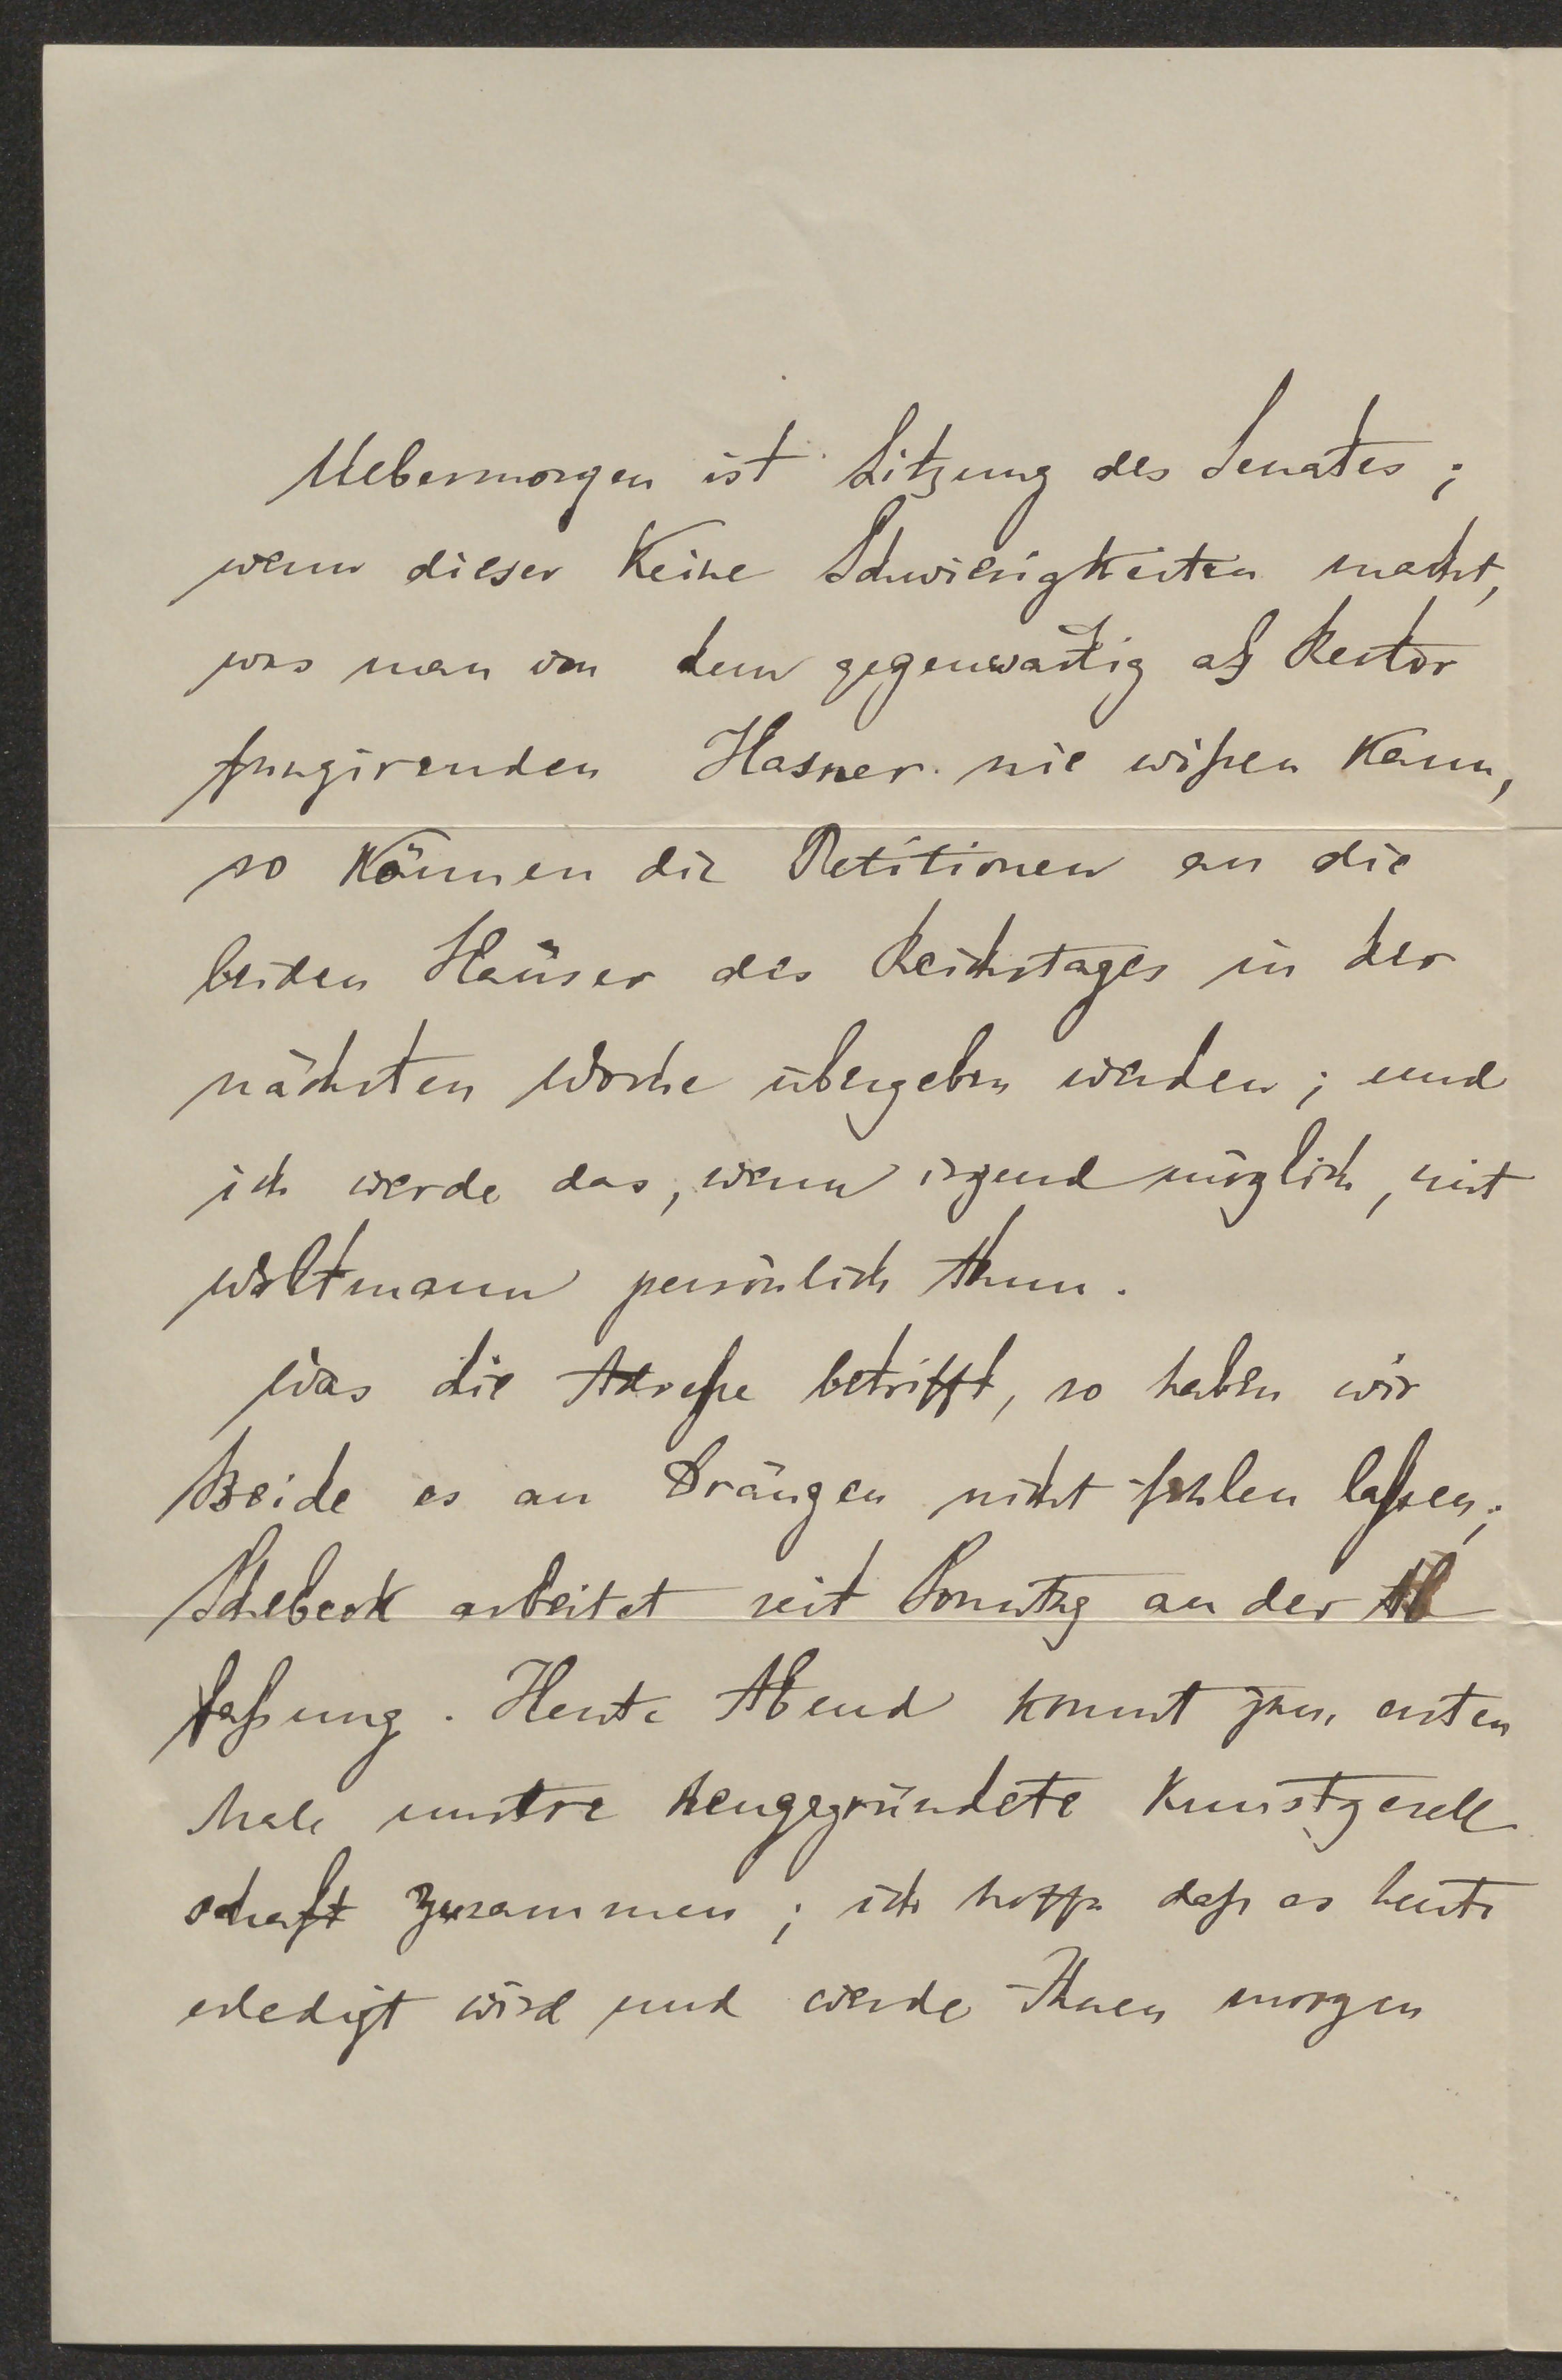 Uebermorgen ist Sitzung des Senates;
wenn dieser Keine Schwierigkeiten macht,
was man von dem gegenwärtig als Rector
fungirenden Hasner nie wißen kann,
so können die Petitionen an die
beiden Häuser des Reichstages in der
nächsten Woche übergeben werden; und
ich werde das, wenn irgend möglich, mit
Woltmann persönlich thun.
Was die Adreße betrifft, so haben wir
Beide es an Drängen nicht fehlen laßen;
Schebeck arbeitet seit Sonntag an der Ab
faßung. Heute Abend kommt zum ersten
Male unsere neugegründete Kunstgesell
schaft zusammen; ich hoffe daß es heute
erledigt wird und werde Ihnen morgen